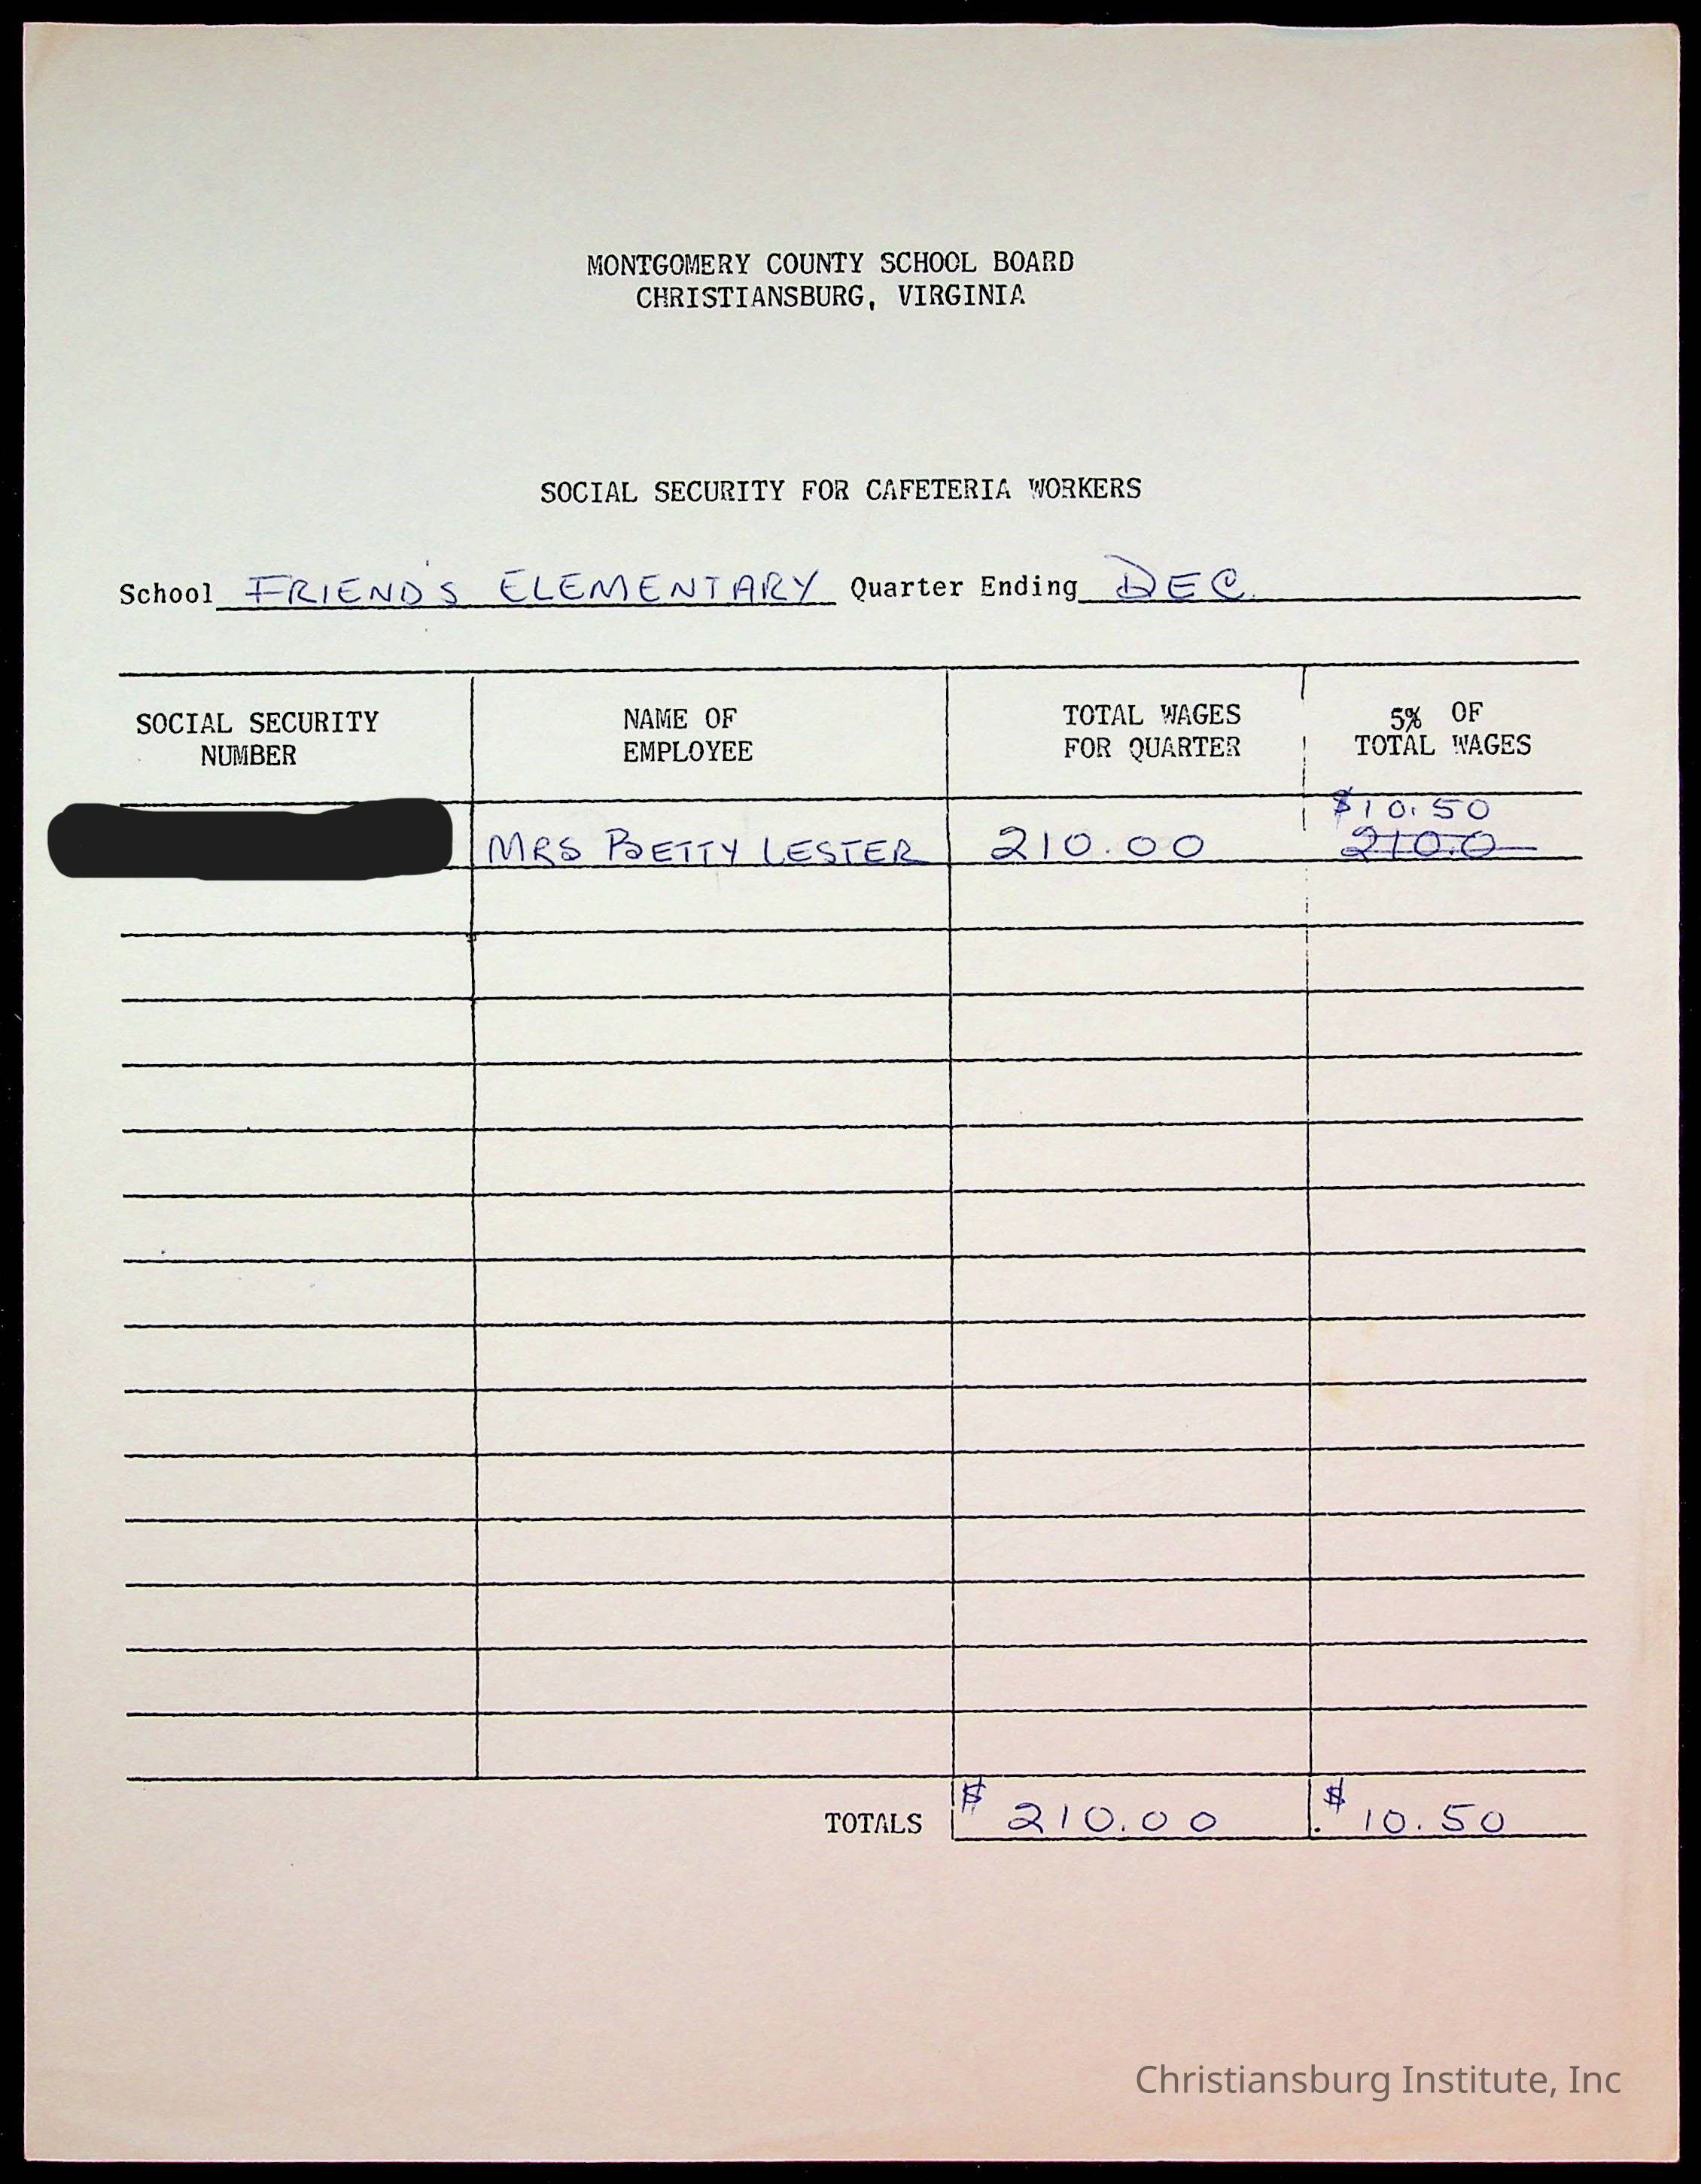 MONTGOMERY COUNTY SCHOOL BOARD
CHRISTIANSBURG, VIRGINIA
SOCIAL SECURITY FOR CAFETERIA WORKERS
School FRIEND'S ELEMENTARY Quarter Ending DEC.
SOCIAL SECURITY NUMBER
NAME OF EMPLOYEE
TOTAL WAGES FOR QUARTER
5% OF TOTAL WAGES
$10.50
MRS BETTY LESTER 210.00 210.0
TOTALS $ 210.00 $ 10.50
Christiansburg Institute, Inc